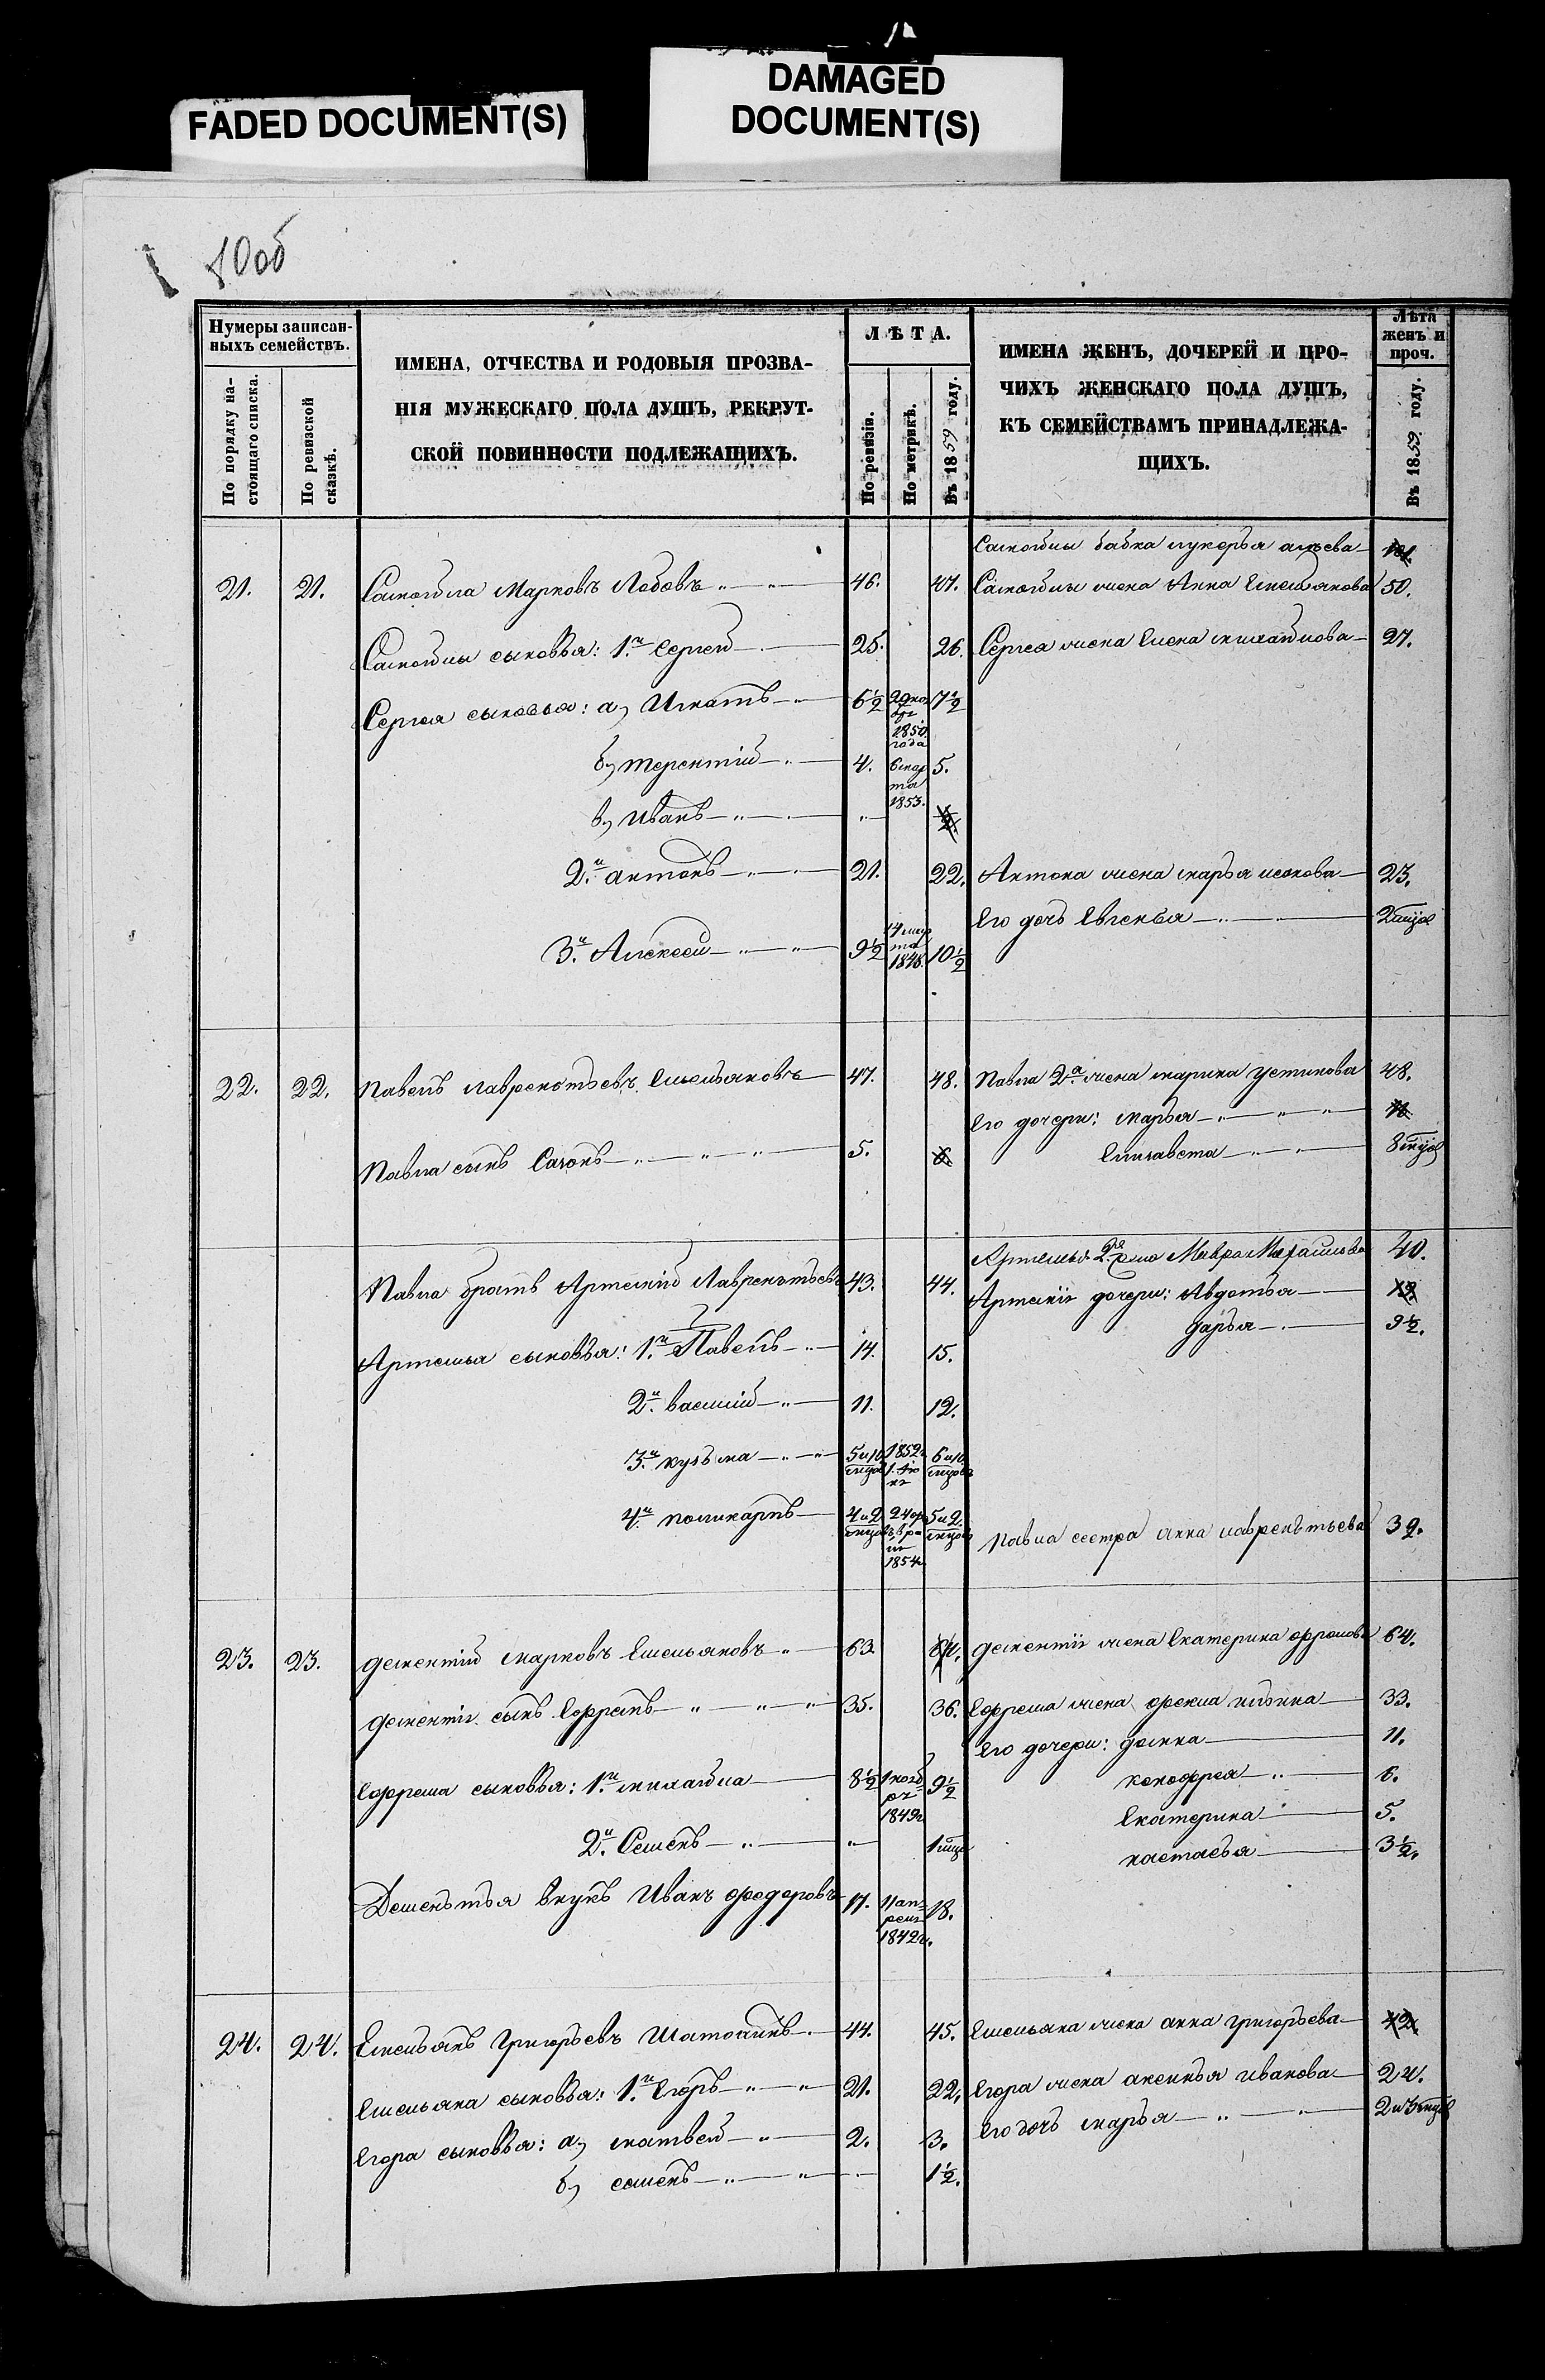 FADED DOCUMENT(S)
DAMAGED
DOCUMENT(S)
10об
Нумеры записан-
ныхъ семействъ.
По порядку на-
стоящаго списка.
По ревизской
сказкѣ.
ИМЕНА, ОТЧЕСТВА И РОДОВЫЯ ПРОЗВА-
НІЯ МУЖЕСКАГО ПОЛА ДУШЪ, РЕКРУТ-
СКОЙ ПОВИННОСТИ ПОДЛЕЖАЩИХЪ.
ЛѢТА.
По ревизіи.
По метрикѣ.
Въ 1859 году.
ИМЕНА ЖЕНЪ, ДОЧЕРЕЙ И ПРО-
ЧИХЪ ЖЕНСКАГО ПОЛА ДУШЪ,
КЪ СЕМЕЙСТВАМЪ ПРИНАДЛЕЖА-
ЩИХЪ.
Лѣта
женъ и
проч.
Въ 1859 году.
Самойлы бабка лукерья
21. 21. Самойла Марковъ Лобовъ 46. 47. Самойлы жена Анна Емельянова 50.
Самойлы сыновья: 1й Сергей 25. 26. Сергея жена Елена михайлова 27.
Сергея сыновья: а, Игнатъ 6½ 1850 года 7½
б, терентій 4. 6 марта 1853. 5.
в, Иванъ
2й антонъ 21. 22. Антона жена марья исакова 23.
Его дочь Евгенья
3й Алексей 9½ 14 марта 1848. 10½
22. 22. Павелъ лаврентьевъ Емельяновъ 47. 48. Павла 2я жена марина устинова 48.
Его дочери: марья
Павла сынъ Сазонъ 5. 6 Елизавета 8 мцов
Артемья 2я жена Мавра 40.
Павла братъ Артемій Лаврентьевъ 43. 44. Артемія дочери: Авдотья 13.
дарья 9½.
Артемья сыновья: 1й Павелъ 14. 15.
2й василій 11. 12.
3й кузьма 5 и 10 мцов 1852г 1. 6 и 10 мцовъ
4й поликарпъ 4 и 2 мцов 24 февраля 1854г 5 и 2 мцов Павла сестра анна лаврентьева 32.
23. 23. дементій марковъ Емельяновъ 63. 64. дементія жена Екатерина фролова 64.
дементія сынъ Ефремъ 35. 36. Ефрема жена фекла 33.
Его дочери: домна 11.
Ефрема сыновья: 1й михайла 8½ 1 ноября 1849г 9½ 6.
Екатерина 5.
2й Семенъ 1 мца настасья 3½.
Дементья внукъ Иванъ федоровъ 17. 11 апреля 1842г. 18.
24. 24. Емельянъ Григорьевъ 44. 45. Емельяна жена анна григорьева 42
Емельяна сыновья: 1й Егоръ 21. 22. Егора жена аксинья иванова 24.
Егора сыновья: а, матвей 2. 3. Его дочь марья
б, семенъ 1½.